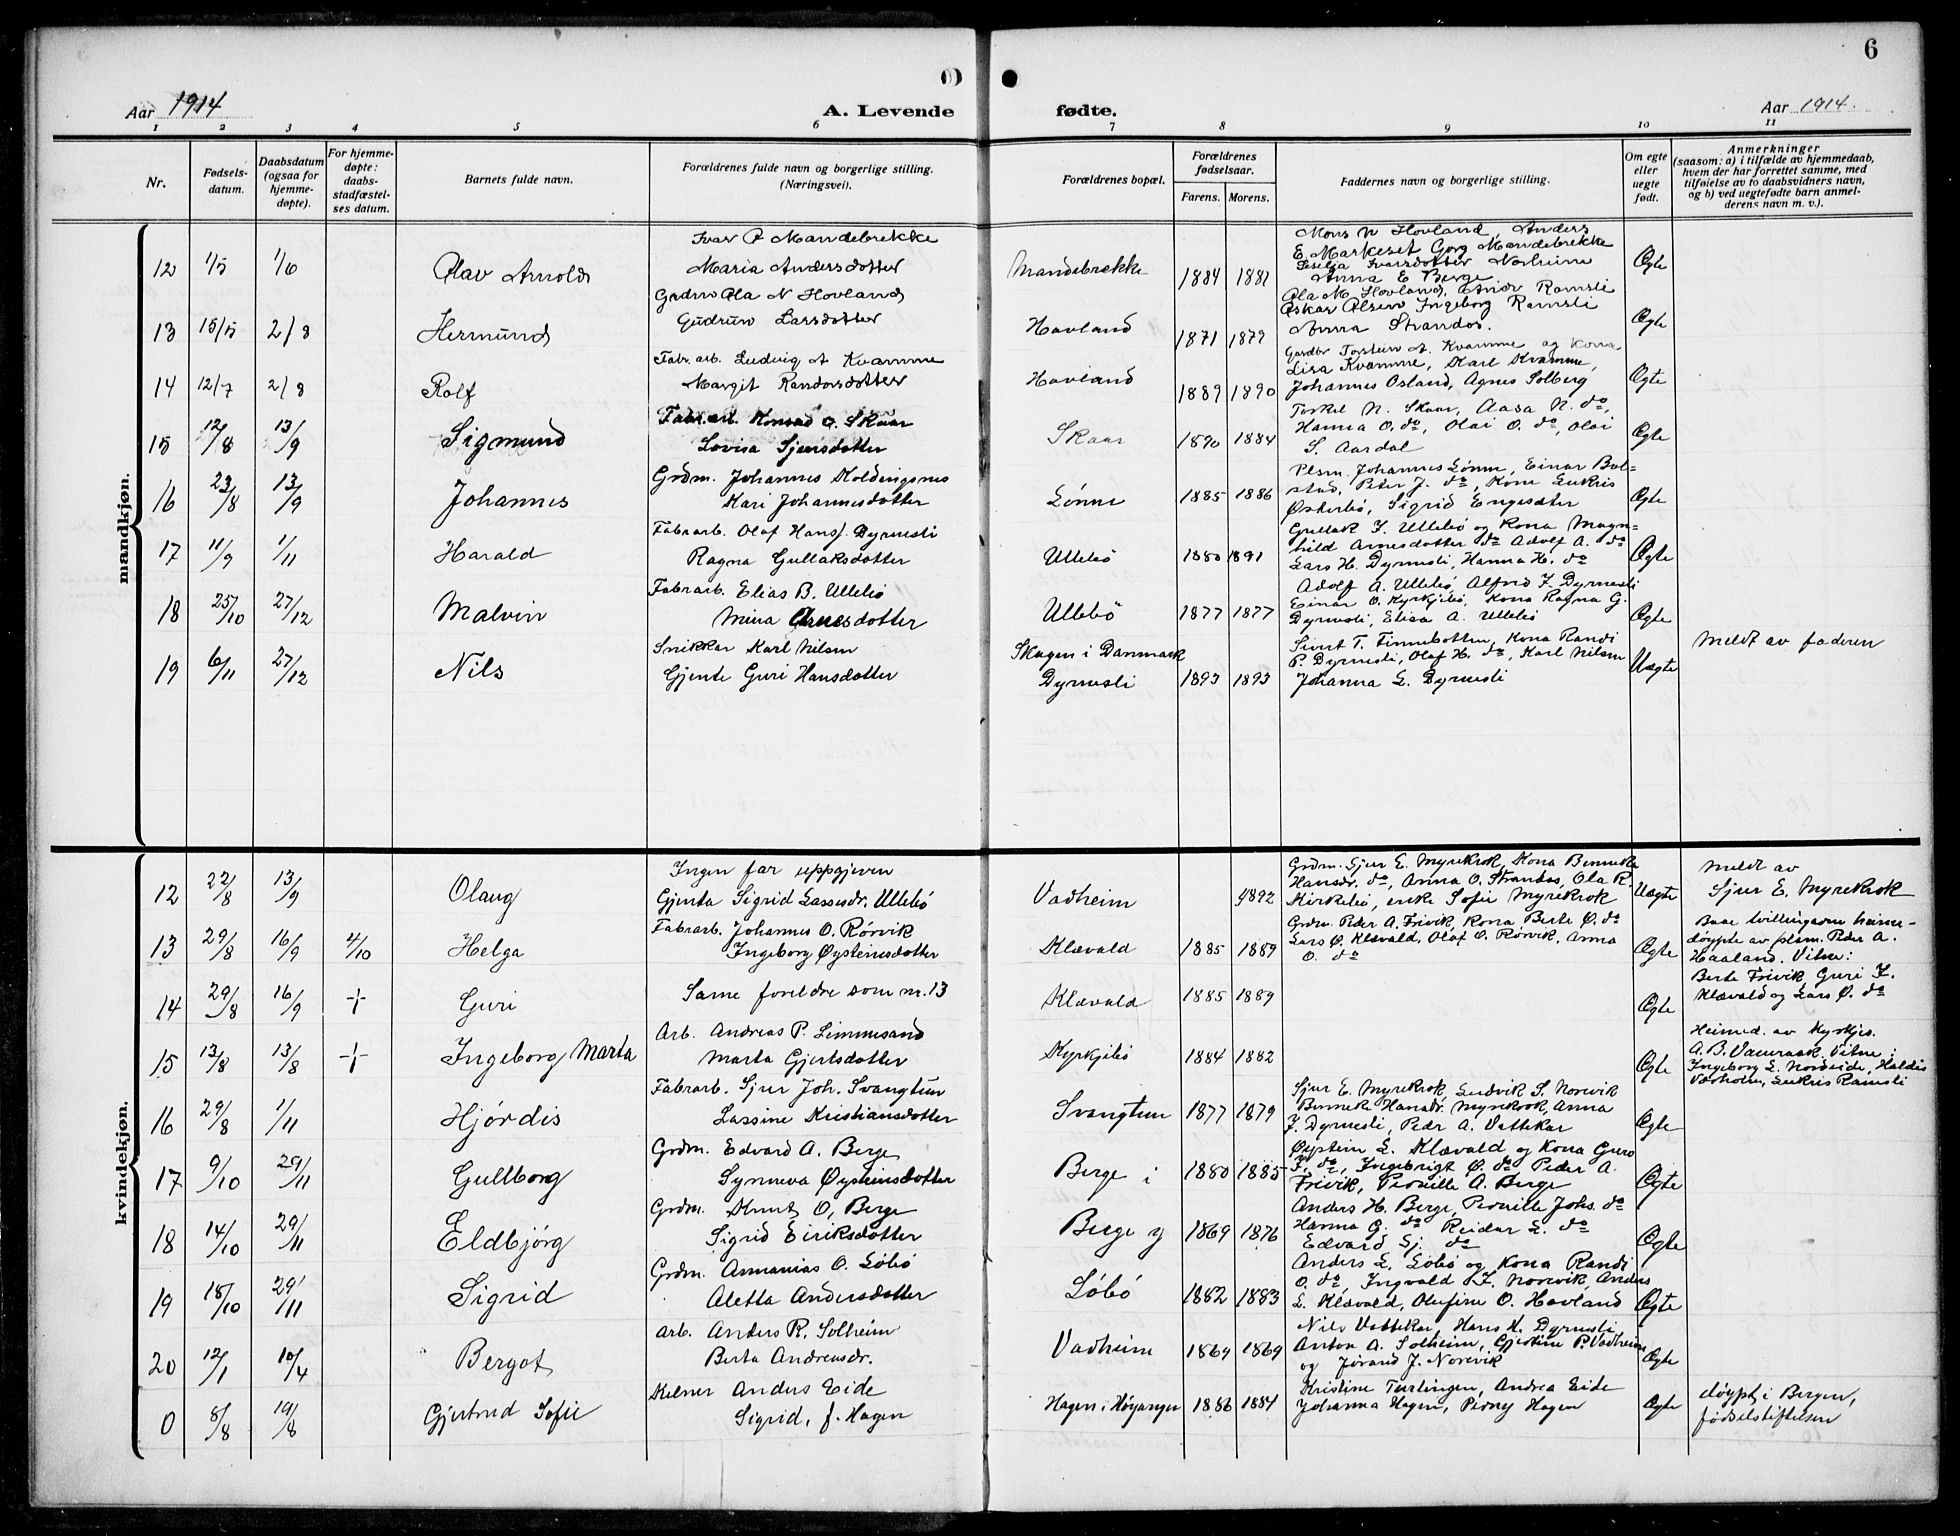 6
Aar 1914
A. Levende fødte.
Aar 1914.
1 2 3 4 5 6 7 8 9 10 11
Nr.
Fødsels-datum.
Daabsdatum (ogsaa for hjemme-døpte).
For hjemme-døpte: daabs-stadfæstel-ses datum.
Barnets fulde navn.
Forældrenes fulde navn og borgerlige stilling. (Næringsvei).
Forældrenes bopæl.
Forældrenes fødselsaar.
Farens. Morens.
Faddernes navn og borgerlige stilling.
Om egte eller uegte født.
Anmerkninger (saasom: a) i tilfælde av hjemmedaab, hvem der har forrettet samme, med tilføielse av to daabsvidners navn, og b) ved uegtefødte barn anmel-derens navn m. v.).
mandkjøn.
Ivar P Mandebrekke Mons N Hovland, Anders
12 1/5 1/6 Olav Arnold Maria Andersdotter Mandebrekke 1884 1881 E. Markeset Gorg Mandebrekke Ægte
Seselja Ivarsdotter Norheim
Anna E Berge
Grdm Ola N Hovland Ola M. Hovland, Ramsli
13 15/5 2/8 Hermund Gudrun Larsdotter Hovland 1871 1879 Oskar Olsen Ingeborg Ramsli Ægte
Anna Strandos.
Fabr. arb. Ludvig A Kvamme Gardbr Torstein A. Kvamme og Kona
14 12/7 2/8 Rolf Margit Randorsdotter Hovland 1889 1890 Lisa Kvamme, Karl Kvamme, Ægte
Johannes Osland, Agnes Solberg
Fabr. arb. Konrad O. Skaar Torkel N. Skaar, Aasa N. do,
15 12/8 13/9 Sigmund Lovisa Sjursdotter Skaar 1890 1884 Hanna O. do, Olai O. do, Olai Ægte
S. Aardal
Grdm. Johannes Koldingsnes Plsm. Johannes Lønne, Einar Bol-
16 23/8 13/9 Johannes Kari Johannesdotter Lønne 1885 1886 stad, Peter J. do, Kone Lukris Ægte
Østerbø, Sigrid Engesæter
Fabrarb. Olaf Hansj. Dyrnesli Gullak J. Ullebø og Kona Magn-
17 11/9 1/11 Harald Ragna Gullaksdotter Ullebø 1880 1891 hild Arnesdotter do Adolf A. do Ægte
Lars H. Dyrnesli, Hanna H. do
Fabrarb. Elias B. Ullebø Adolf A. Ullebø, Alfrid J. Dyrnesli
18 25/10 27/12 Malvin Mina Arnesdotter Ullebø 1877 1877 Einar O. Kyrkjebø, Kona Ragna G. Ægte
Dyrnesli, Elisa A. Ullebø
Snikkar Karl Nilsen Skagen i Danmark Sivert T. Finnebotten, Kona Randi Meldt av faderen
19 6/11 27/12 Nils Gjente Guri Hansdotter Dyrnesli 1893 1893 P. Dyrnesli, Olaf H. do, Karl Nilsen Uægte
Johanna L. Dyrnesli
kvindekjøn.
Ingen far uppgjeven Grdm. Sjur E. Myrekrok, Kona Binneke Meldt av
12 22/8 13/9 Olaug Gjenta Sigrid Lassesdr. Ullebø Vadheim 1892 Hansdr. do, Anna O. Strandos, Ola R. Uægte Sjur E. Myrekrok
Kirkebø, enke Sofie Myrekrok
Fabrarb. Johannes O. Rørvik Grdm. Peder A. Frivik, Kona Berte Ø. do Baae tvillingarne heime-
13 29/8 16/9 4/10 Helga Ingeborg Øysteinsdotter Klævald 1885 1889 Lars Ø. Klævald, Olaf O. Rørvik, Anna Ægte døypte av plsm. Peder A.
O. do Haaland. Vitne:
14 29/8 16/9 + Guri Same foreldre som nr. 13 Klævald 1885 1889 Ægte Berte Frivik Guri J.
Klævald og Lars Ø. do
Arb. Andreas P. Limmesand Heimed. av Kyrkjes.
15 13/8 13/8 + Ingeborg Marta Marta Gjertsdotter Kyrkjebø 1884 1882 Ægte A. B. Vaeraak. Vitne:
Ingeborg L. Nordeide, Haldis
Værholm, Lukris Ramsli
Fabrarb. Sjur Joh. Svangtun Sjur E. Myrekrok, Ludvik S. Norevik
16 29/8 1/11 Hjørdis Lassine Kristiansdotter Svangtun 1877 1879 Binneke Hansdr. Myrekrok, Anna Ægte
J. Dyrnesli, Peder A. Vattekar
Grdm. Edvard A. Berge Øystein L. Klævald og Kona Guro
17 9/10 29/11 Gullborg Synneva Øysteinsdotter Berge i 1880 1885 J. do, Ingebrigt Ø. do Peder A. Ægte
Frivik, Pernille A. Berge
Grdm. Knut O. Berge Anders H. Berge, Pernille Johs. do
18 14/10 29/11 Eldbjørg Sigrid Eiriksdotter Berge y 1869 1876 Hanna G. do Reidar L. do Ægte
Edvard Sj. do
Grdm. Annanias O. Løbø Anders L. Løbø og Kona Randi
19 18/10 29/11 Sigrid Aletta Andersdotter Løbø 1882 1883 O. do, Ingvald J. Norevik, Anders Ægte
L. Klævald, Olufine O. Hovland
Arb. Anders R. Solheim Nils Vattekar, Hans H. Dyrnesli
20 12/1 10/4 Bergot Berta Andreasdr. Vadheim 1869 1869 Anton A. Solheim, Gjertine P. Vadheim Ægte
og Jørand J. Norevik
Kelner Anders Eide Kristine Terlingen, Andrea Eide døypt i Bergen,
0 8/8 19/8 Gjertrud Sofie Sigrid, f. Hagen Hagen i Høyanger 1886 1884 Johanna Hagen, Perny Hagen Ægte fødselstiftelsen